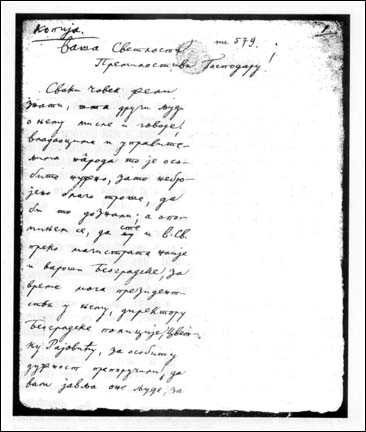 Копија.
Ваша Светлост!
Премилостиви Господару!
Сваки човек жели
знати, шта други људи
о њему мисле и говоре,
владаоцима и управите-
њима народа то је осо-
бито нужно, зато небро-
јено благо троше, да
би то дознали; а опо-
мињем се, да сте и В. Св.
преко магистрата наије
и вароши Београдске, за
време мога президент-
ства у њему, директору
Београдске полиције, Цвет-
ку Рајовићу, за особиту
дужност препоручили, да
вам јавља оне људе, за